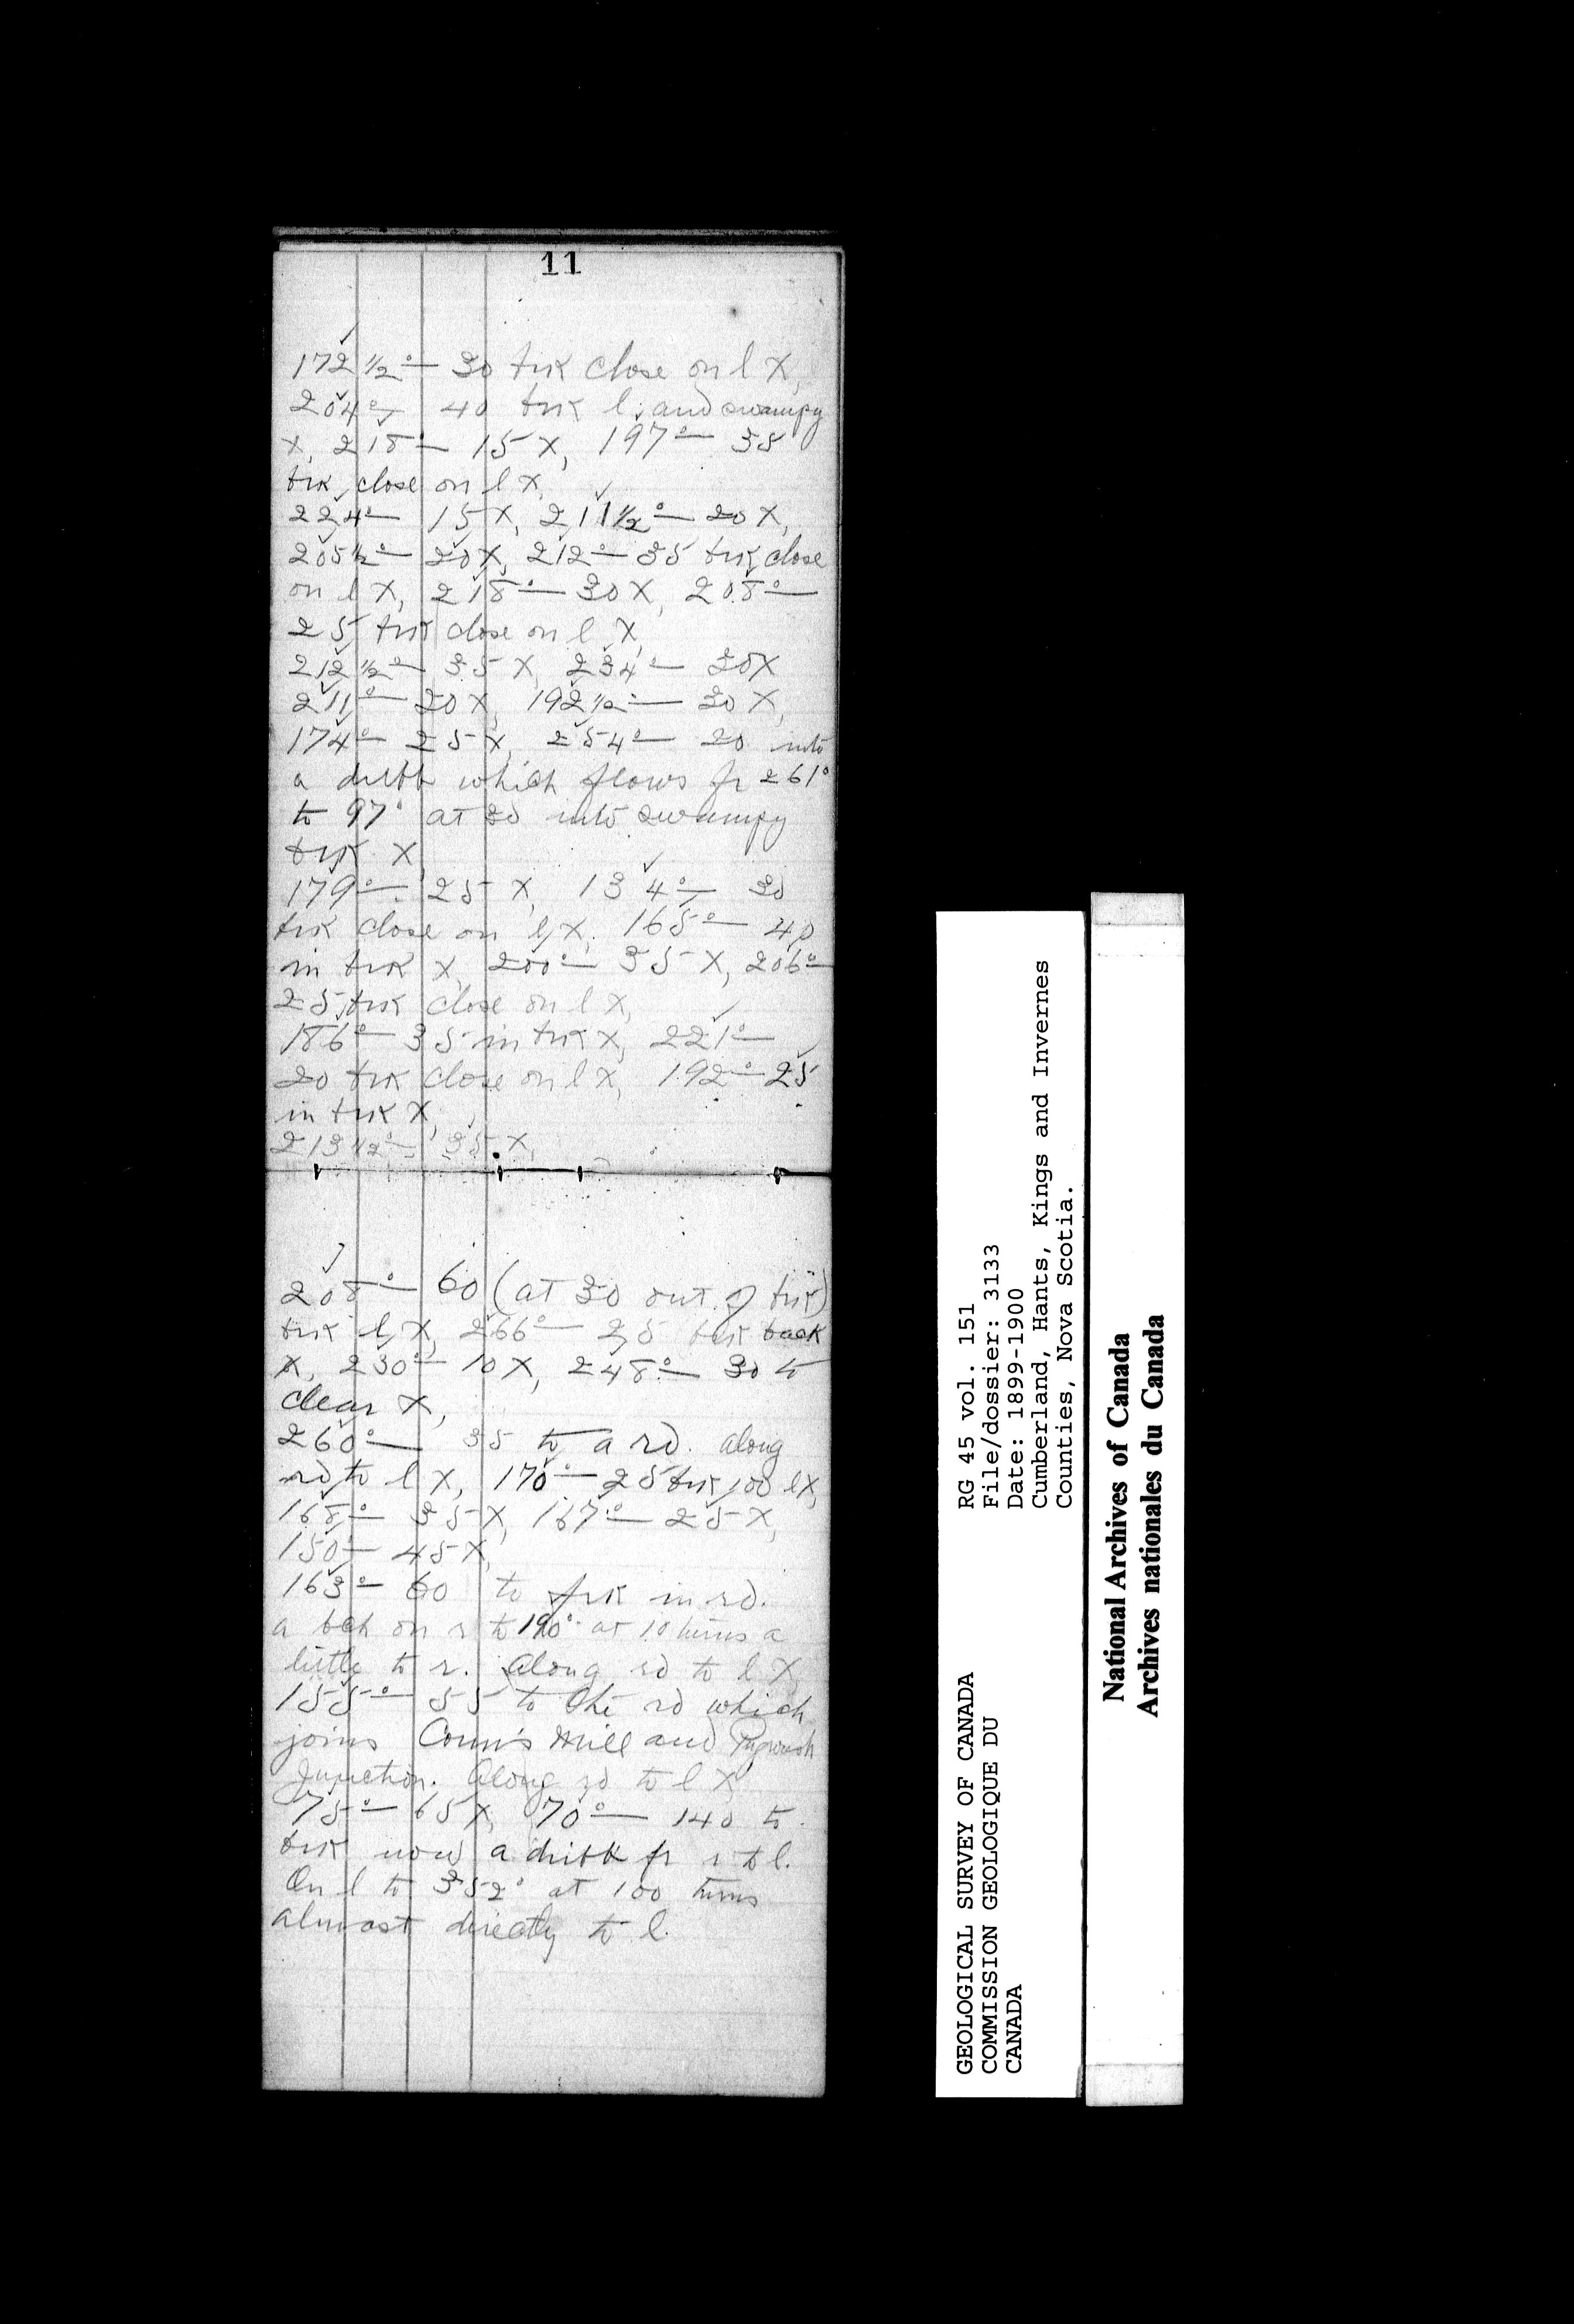 11
172 1/2° — 30 brk close on l X,
204° — 40 brk l, and swampy
X, 218° — 15 X, 197° — 35
brk close on l X,
224° — 15 X, 211 1/2° — 20 X,
205 1/2° — 20 X, 212° — 35 brk close
on l X, 218° — 30 X, 208° —
25 brk close on l X,
212 1/2° — 35 X, 234° — 20 X
211° — 20 X, 192 1/2° — 30 X,
174° — 25 X, 254° — 20 into
a which flows fr 261°
to 97° at 30 into swampy
brk X,
179° — 25 X, 134° — 30
brk close on l, X, 165° — 40
in brk X, 200° — 35 X, 206° —
25 brk close on l X,
186° — 35 in brk X, 221° —
20 brk close on l X, 192° — 25
in brk X,
213 1/2° — 35 X,
208° — 60 (at 30 out of brk)
brk l, X, 266° — 25 brk back
X, 230° — 10 X, 248° — 30 to
clear X,
260° — 35 to a rd. along
rd to l X, 170° — 25 brk 100 l X,
168° — 35 X, 167° — 25 X,
150° — 45 X,
163° — 60 to frk in rd.
a bch on r to 190° at 10 turns a
little to r. Along rd to l X,
155° — 55 to the rd which
joins Conn's Mill and Pugwash
Junction. Along rd to l X,
75° — 65 X, 70° — 140 to
brk now a fr r to l.
On l to 352° at 100 turns
almost directly to l.
GEOLOGICAL SURVEY OF CANADA
COMMISSION GEOLOGIQUE DU
CANADA
RG 45 vol. 151
File/dossier: 3133
Date: 1899-1900
Cumberland, Hants, Kings and Invernes
Counties, Nova Scotia.
National Archives of Canada
Archives nationales du Canada